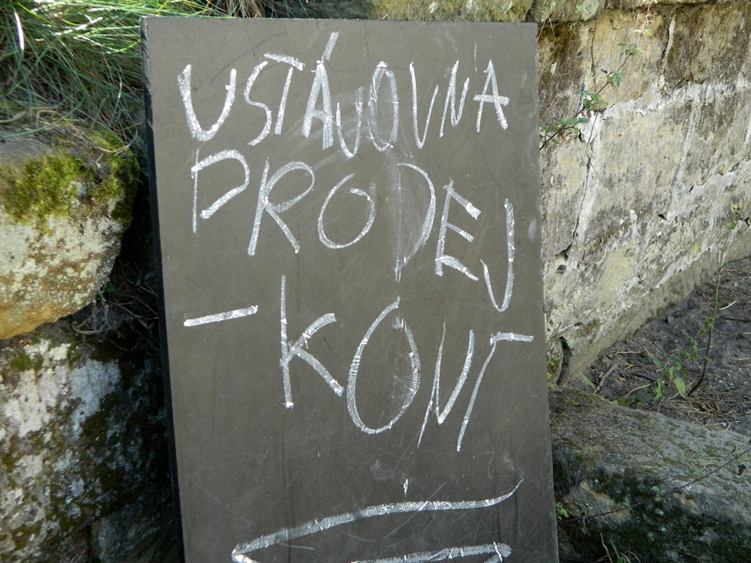 USTÁJOVNA
PRODEJ
-KONÍ